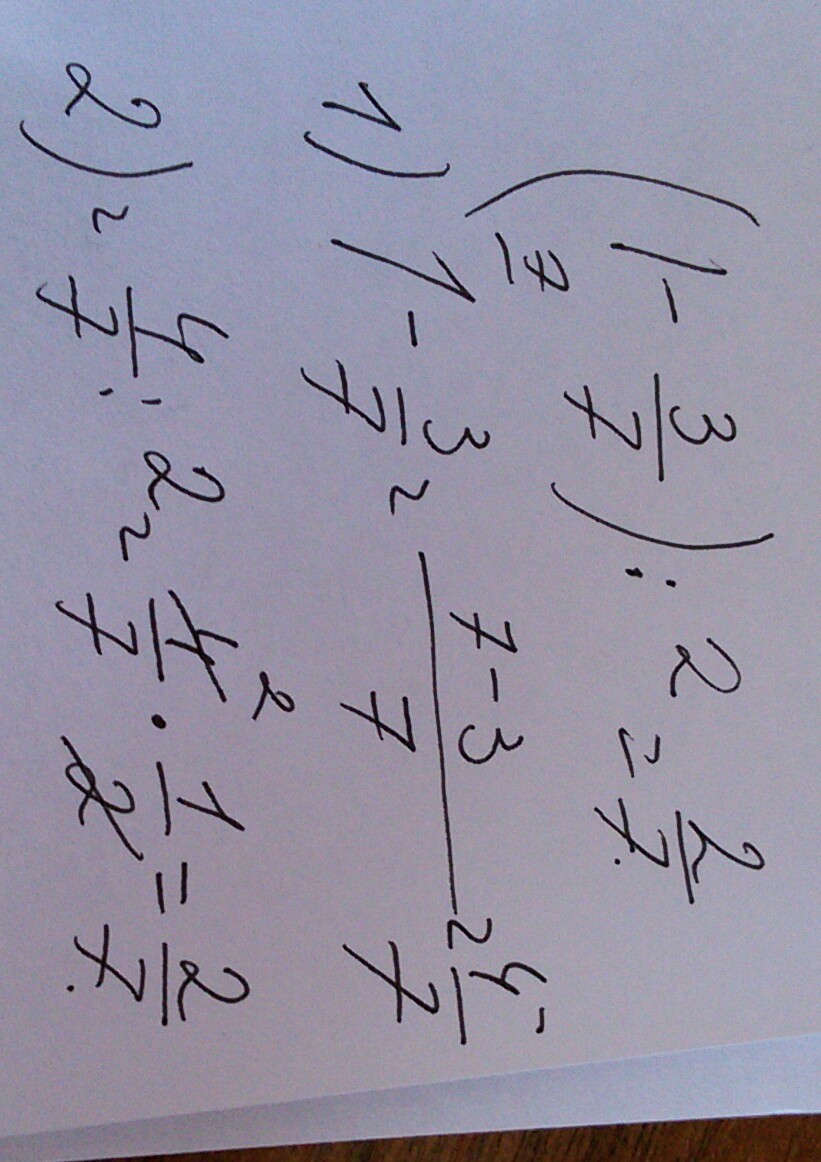 (1 - 3/7) : 2 = 2/7.
7
1) 1 - 3/7 = 7-3/7 = 4/7;
2) = 4/7 : 2 = 4/7 · 1/2 = 2/7.
2